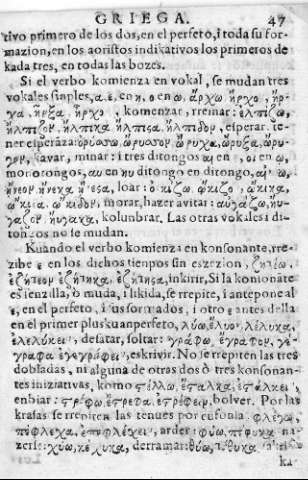 GRIEGA. 47
tivo primero de los dos, en el perfeto, i toda su for-
mazion, en los aoristos indikativos los primeros de
kada tres, en todas las bozes.
Si el verbo komienza en vokal, se mudan tres
vokales sinples, α. ε, en η, ο en ω, ἄρχω ἦρχο, ἦρ-
χα, ἦρχο, komenzar, rreinar: ἐλπίζω,
ἤλπιζον, ἤλπικα ἤλπισα, ἤλπιδον, esperar, te-
ner esperãza: ὀρύσσω, ὤρυσσον ὤρυχα, ὤρυξα, ὤρυ-
γον, kavar, minar: i tres ditongos en en ω,
monotongos, αυ en ηυ ditongo en ditongo,
loar: οἰκίζω. ᾤκιζο, ᾤκικα,
morar, hazer avitar: αὐγάζω, ηὔγα-
ζον, ηὔγακα, kolunbrar. Las otras vokales i di-
tongos no se mudan.
Kuando el verbo komienza en konsonante, rre-
zibe ε en los dichos tienpos sin eszezion, ζητέω,
ἐζήτεον ἐζήτηκα, ἐζήτησα, inkirir, Si la konsonãte
es senzilla, o muda, i likida, se rrepite, i antepone al
ε, en el perfeto, i sus formados, i otro ε antes della
en el primer pluskuanperfeto, λύω, ἔλυον, λέλυκα,
ἐλελύκειν, desatar, soltar: γράφω, ἔγραφον, γέ-
γραφα ἐγεγράφειν, eskrivir. No se rrepiten las tres
dobladas, ni alguna de otras dos ò tres konsonan-
tes iniziativas, komo στέλλω, ἔσταλκα, ἐστάλκειν,
enbiar: στρέφω, ἔστρεφα, ἐστρέφειν, bolver. Por las
krasas se rrepiten las tenues por eufonia. φλέγω,
πέφλεχα, ἐπεφλέχειν, arder: φύω, πέφυκα na-
zer: χύω, κέχυκα, derramar: θύω, τέθυκα
ka-